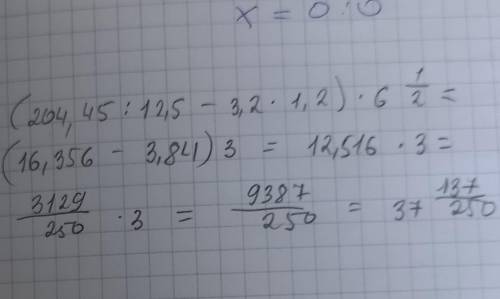 x = 0:0
(204,45 : 12,5 - 3,2 · 1,2) · 6 1/2 =
(16,356 - 3,84) 3 = 12,516 · 3 =
3129/250 · 3 = 9387/250 = 37 137/250